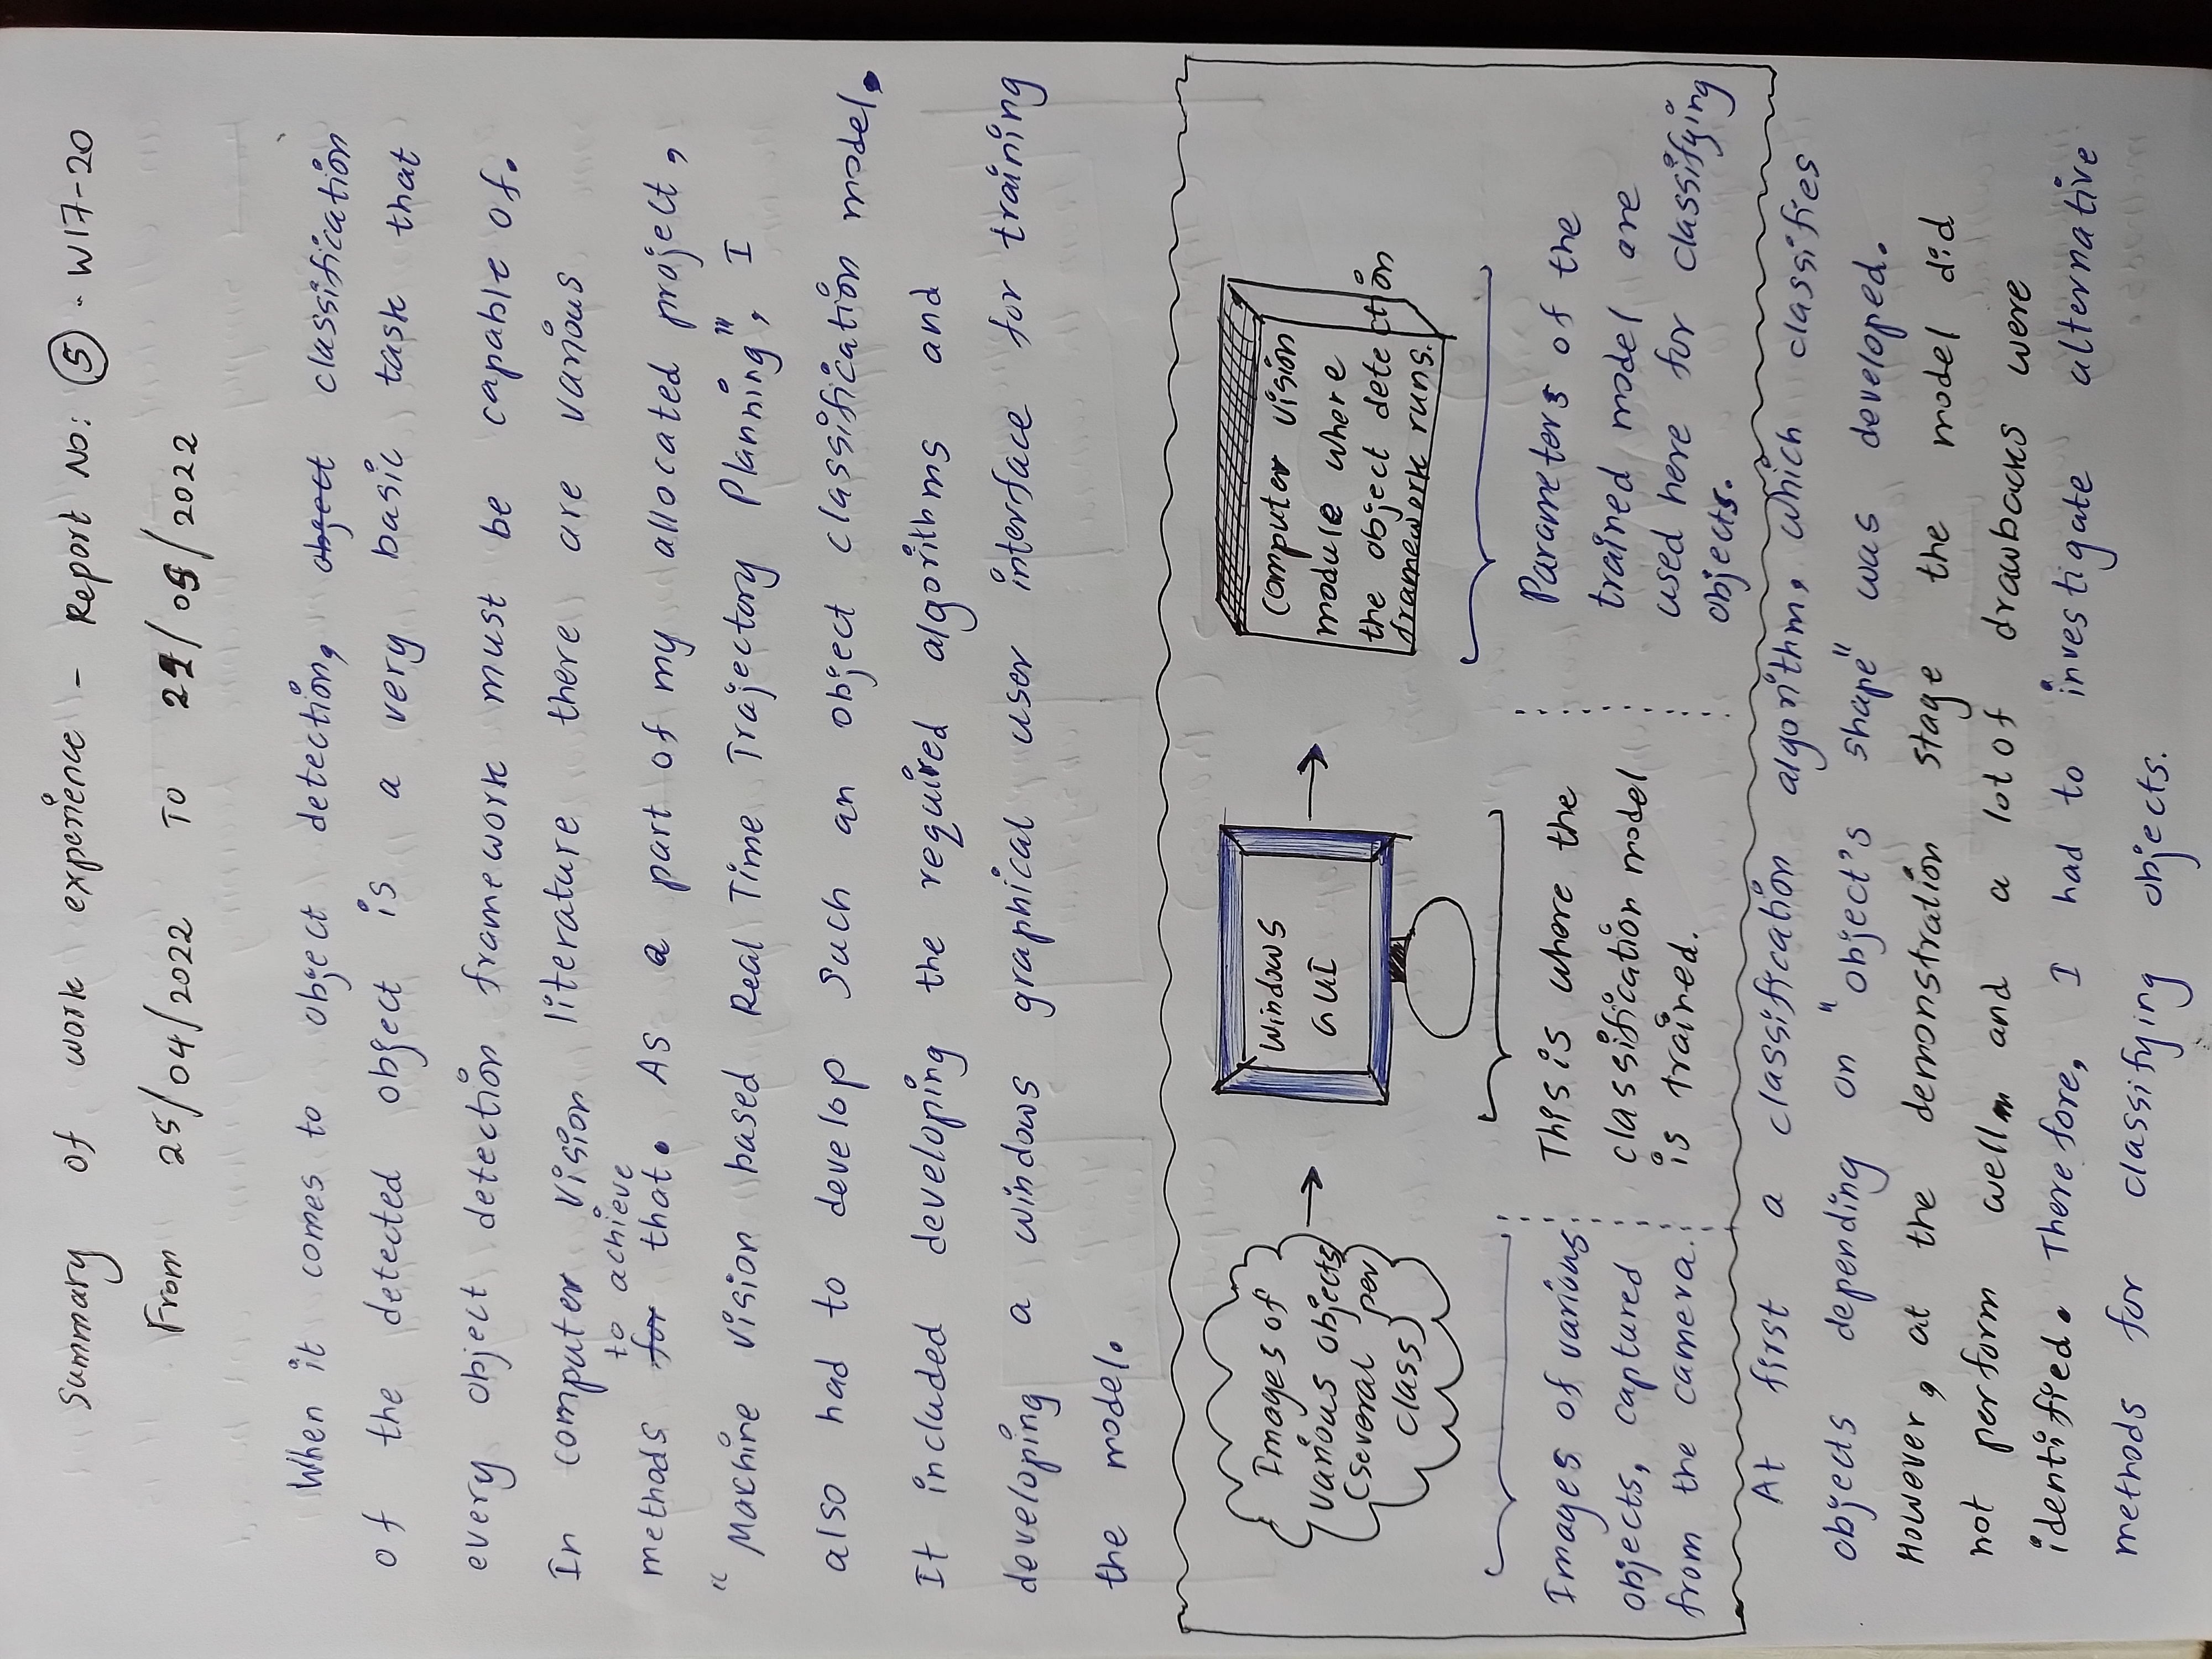 Summary of work experience - Report No: 5 - W17-20
From 25/04/2022 To /2022
When it comes to object detection, object classification
of the detected object is a very basic task that
every object detection framework must be capable of.
In computer vision literature there are various
to achieve
methods for that. As a part of my allocated project,
"Machine vision based Real Time Trajectory Planning", I
also had to develop such an object classification model.
It included developing the required algorithms and
developing a windows graphical user interface for training
the model.
Images of
various objects
(several per
class)
Windows
GUI
Computer vision
module where
the object detection
framework runs.
Images of various
objects, captured
from the camera.
This is where the
classification model
is trained.
Parameters of the
trained model are
used here for classifying
objects.
At first a classification algorithm, which classifies
objects depending on "object's shape" was developed.
However, at the demonstration stage the model did
not perform well and a lot of drawbacks were
identified. Therefore, I had to investigate alternative
methods for classifying objects.